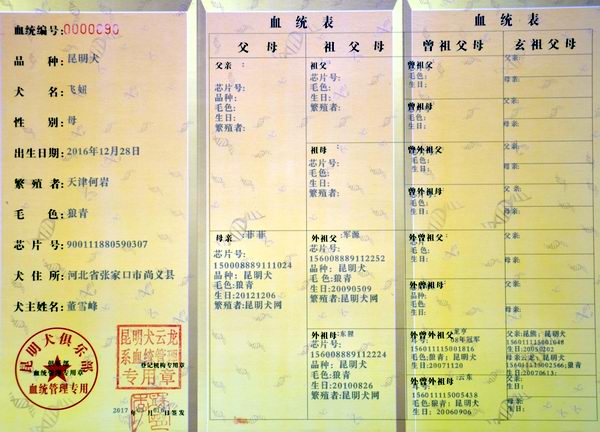 血统编号:0000690
品 种: 昆明犬
犬 名: 飞妞
性 别: 母
出生日期: 2016年12月28日
繁殖者: 天津何岩
毛 色: 狼青
芯片号: 900111880590307
犬住所: 河北省张家口市尚义县
犬主姓名: 董雪峰
昆明犬俱乐部
血统管理专用
昆明犬云龙
系血统管理
专用章
登记机构专用章
2017
签发
血统表
父母
祖父母
父亲 :
芯片号:
品种:
毛色:
生日:
繁殖者:
祖父:
芯片号:
毛色:
生日:
繁殖者:
祖母:
芯片号:
毛色:
生日:
繁殖者:
母亲 :菲菲
芯片号:
150008889111024
品种: 昆明犬
毛色:狼青
生日:20121206
繁殖者:昆明犬网
外祖父:军源
芯片号:
156008889112252
品种: 昆明犬
毛色:狼青
生日:20090509
繁殖者:昆明犬网
外祖母:东疆
芯片号:
156008889112251
品种:昆明犬
毛色:狼青
生日:20100826
繁殖者:昆明犬网
血统表
曾祖父母
玄祖父母
曾祖父:
毛色:
生日:
曾祖母:
毛色:
生日:
曾外祖父:
毛色:
生日:
曾外祖母:
毛色:
生日:
外曾祖父:
毛色:
生日:
外曾祖母:
品种:
毛色:
生日:
外曾外祖父:
芯片号: 08年冠军
156011115001816
毛色:狼青; 昆明犬
生日:20071120
外曾外祖母:云东
芯片号:
156011115005438
毛色:狼青; 昆明犬
生日: 20060906
父亲:
母亲:
父亲:
母亲:
父亲:
母亲:
父亲:
母亲:
父亲:
母亲:
父亲:
母亲:
父亲: 昆熊; 昆明犬
生日:20050202
母亲:云龙; 昆明犬
生日:20070613
父亲:
生日:
母亲:
生日: